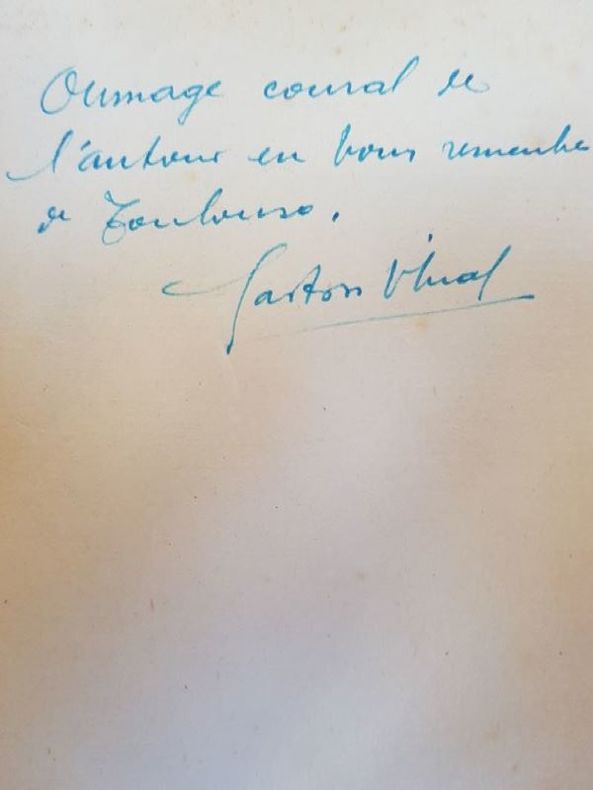 Oumage coural de
l'autour en boun remembre
de Toulouso.
Gaston